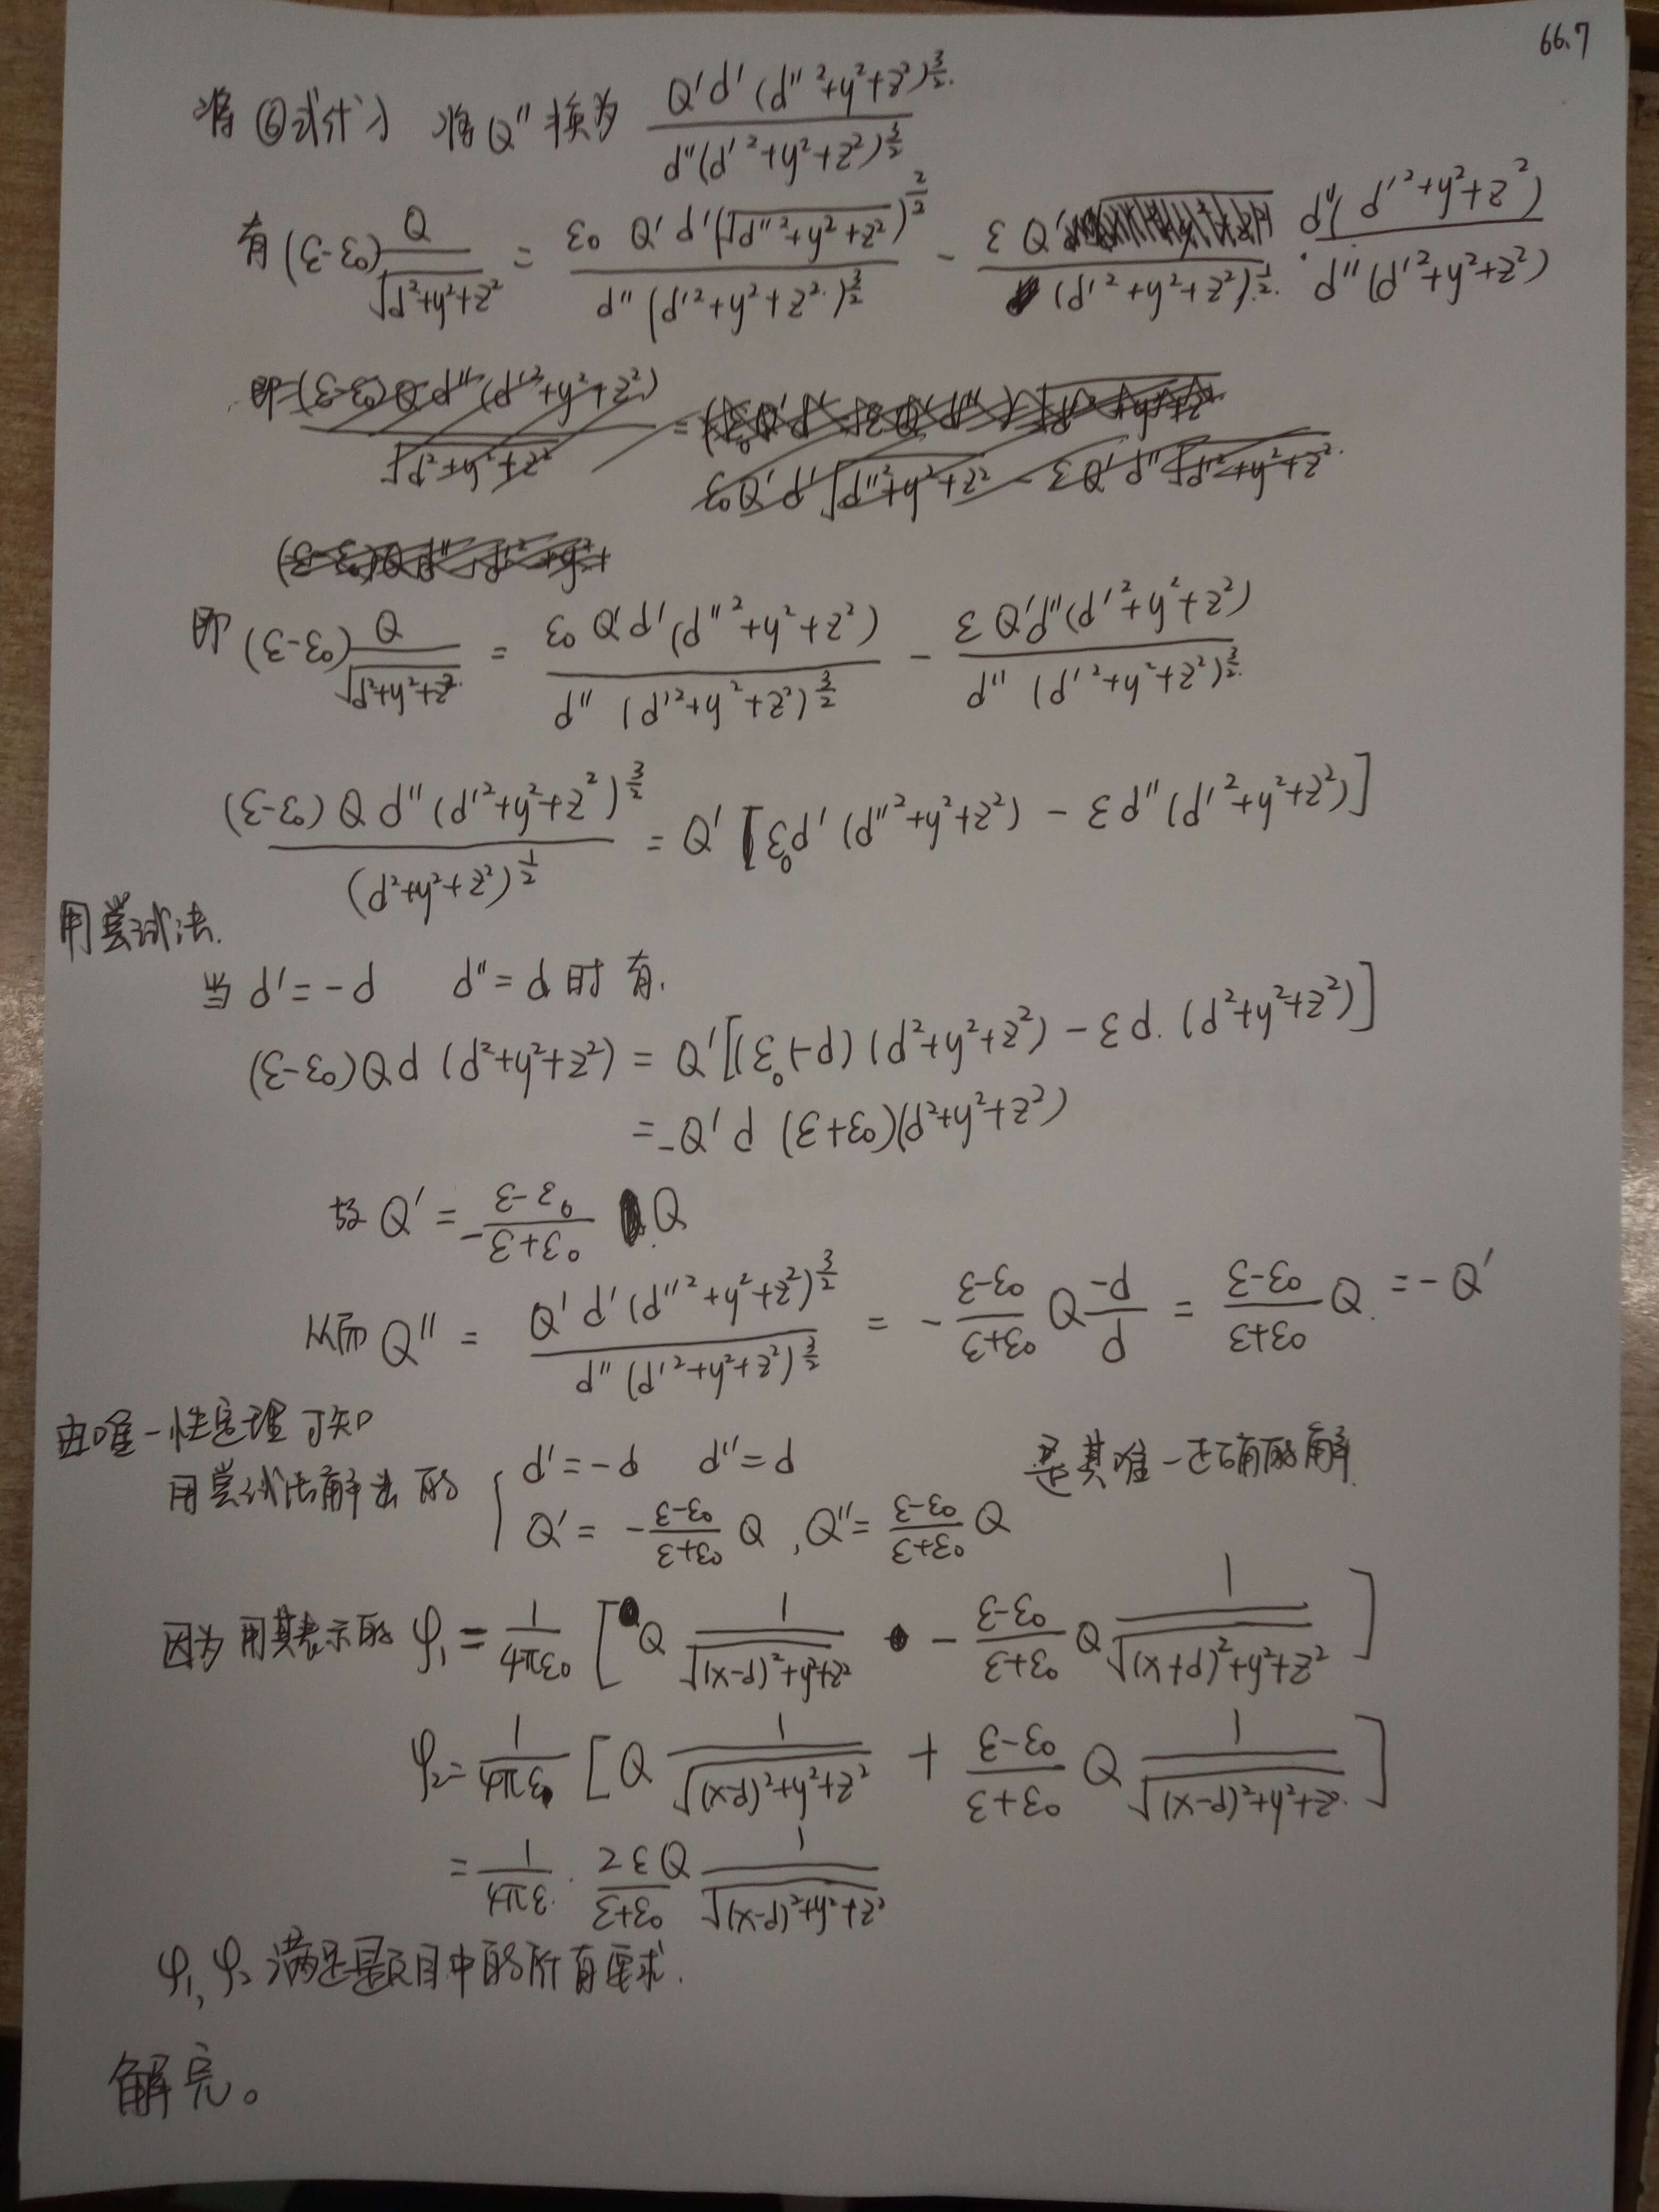 66.7
将⑥式代入 将Q''换为 Q'd'(d''²+y²+z²)^{3/2} / d''(d'²+y²+z²)^{3/2}
有 (ε₀-ε) Q/√(d²+y²+z²) = ε₀Q'd'(d''²+y²+z²) / d''(d'²+y²+z²)^{3/2} - εQ' / (d'²+y²+z²)^{1/2} · d''(d'²+y²+z²) / d''(d'²+y²+z²)
即 (ε₀-ε) Q/√(d²+y²+z²) = ε₀Q'd'(d''²+y²+z²) / d''(d'²+y²+z²)^{3/2} - εQ'd''(d'²+y²+z²) / d''(d'²+y²+z²)^{3/2}
(ε₀-ε)Qd''(d'²+y²+z²)^{3/2} / (d²+y²+z²)^{1/2} = Q'[ε₀d'(d''²+y²+z²) - εd''(d'²+y²+z²)]
用尝试法.
当 d'=-d d''=d 时 有.
(ε₀-ε)Qd(d²+y²+z²) = Q'[ε₀(-d)(d²+y²+z²) - εd·(d²+y²+z²)]
= -Q'd(ε+ε₀)(d²+y²+z²)
故 Q' = -(ε₀-ε)/(ε₀+ε) Q
从而 Q'' = Q'd'(d''²+y²+z²)^{3/2} / d''(d'²+y²+z²)^{3/2} = -(ε₀-ε)/(ε₀+ε) Q (-d)/d = (ε₀-ε)/(ε₀+ε) Q. = -Q'
由唯一性定理可知
用尝试法解出的 { d'=-d d''=d 是其唯一正确的解.
Q' = -(ε₀-ε)/(ε₀+ε) Q, Q'' = (ε₀-ε)/(ε₀+ε) Q
因为用其表示的 φ₁ = 1/4πε₀ [Q 1/√((x-d)²+y²+z²) - (ε₀-ε)/(ε₀+ε) Q 1/√((x+d)²+y²+z²)]
φ₂ = 1/4πε [Q 1/√((x-d)²+y²+z²) + (ε₀-ε)/(ε₀+ε) Q 1/√((x-d)²+y²+z²)]
= 1/4πε · 2εQ/(ε₀+ε) 1/√((x-d)²+y²+z²)
φ₁, φ₂ 满足题目中的所有要求.
解完。